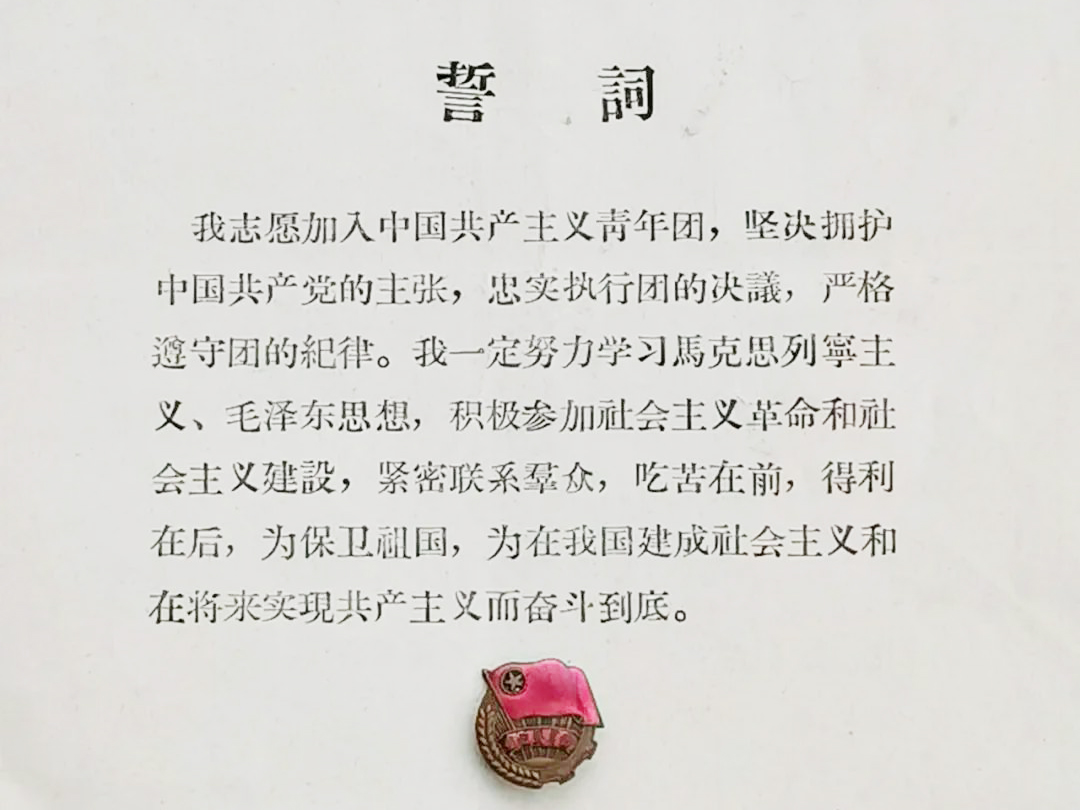 誓 詞
我志愿加入中国共产主义青年团，坚决拥护
中国共产党的主张，忠实执行团的决議，严格
遵守团的紀律。我一定努力学习馬克思列寧主
义、毛泽东思想，积极参加社会主义革命和社
会主义建設，紧密联系羣众，吃苦在前，得利
在后，为保卫祖国，为在我国建成社会主义和
在将来实现共产主义而奋斗到底。